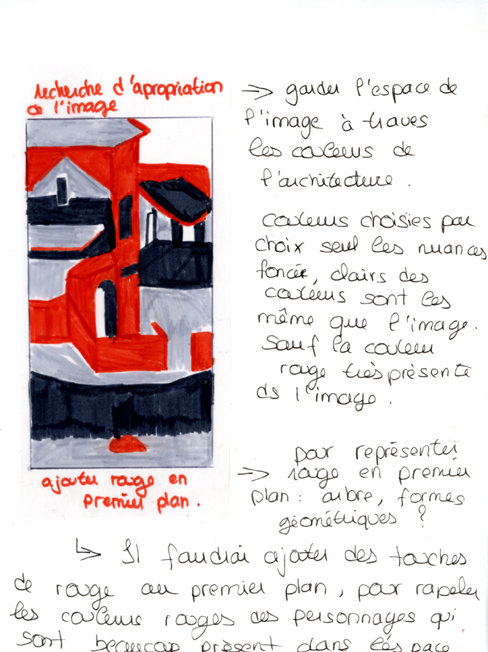 recherche d'apropriation
de l'image
→ garder l'espace de
l'image à traves
les couleurs de
l'architecture.
couleurs choisies par
choix seul les nuances
foncée, clairs des
couleurs sont les
même que l'image.
Sauf la couleur
rouge très présente
ds l'image.
ajouter rouge en
premier plan.
pour représenter
→ rouge en premier
plan : arbre, formes
géométriques ?
↳ Il faudrai ajouter des touches
de rouge au premier plan, pour rapeler
les couleurs rouges des personnages qui
sont beaucoup présent dans l'espace